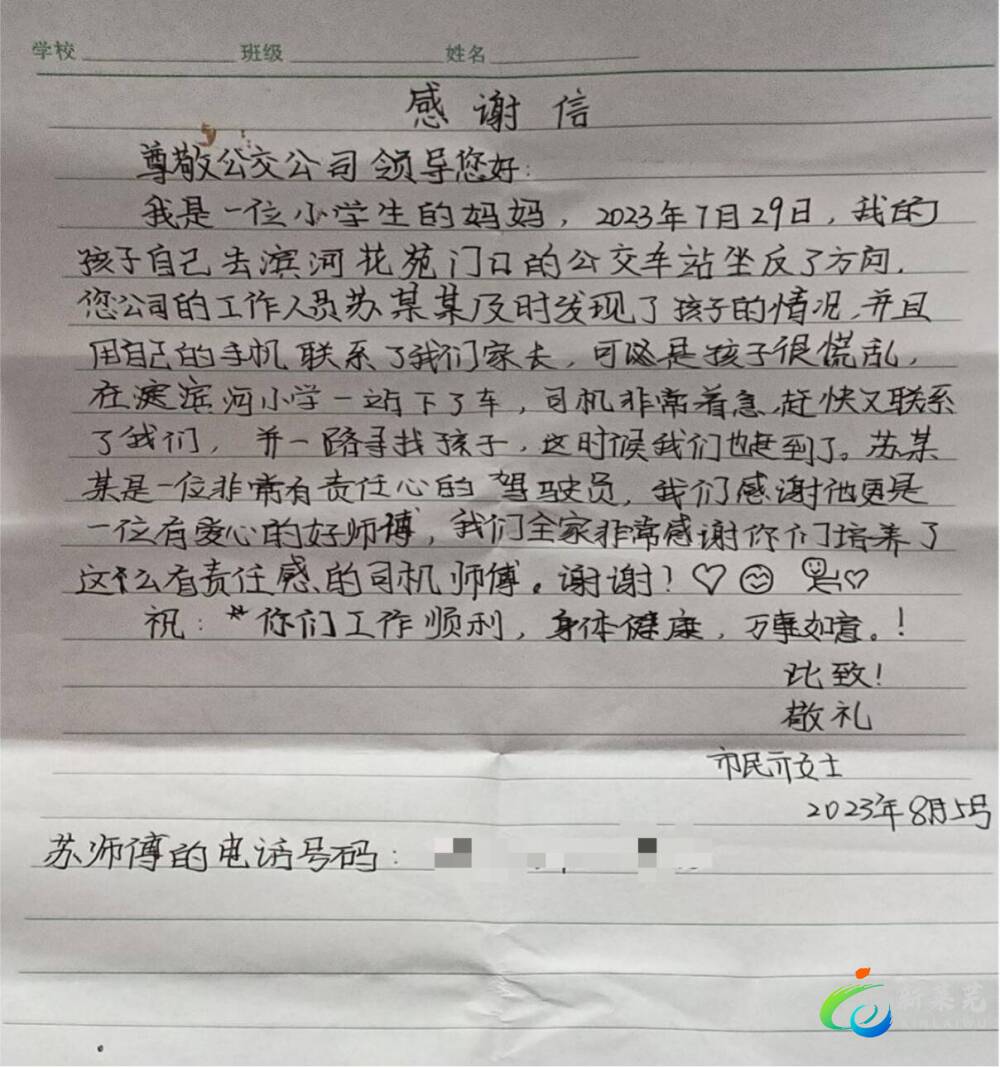 学校 班级 姓名
感谢信
尊敬公交公司领导您好:
我是一位小学生的妈妈，2023年7月29日，我的
孩子自己去滨河花苑门口的公交车站坐反了方向，
您公司的工作人员苏某某及时发现了孩子的情况，并且
用自己的手机联系了我们家长，可是孩子很慌乱，
在滨河小学一站下了车，司机非常着急，赶快又联系
了我们，并一路寻找孩子，这时候我们也赶到了。苏某
某是一位非常有责任心的驾驶员，我们感谢他更是
一位有爱心的好师傅，我们全家非常感谢你们培养了
这么有责任感的司机师傅。谢谢！
祝：你们工作顺利，身体健康，万事如意。！
比致！
敬礼
市民亓女士
2023年8月5号
苏师傅的电话号码：
新莱芜
XINLAIWU